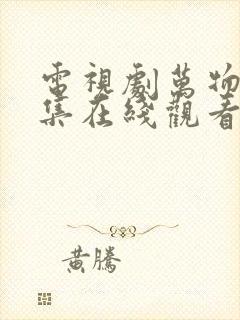 電視劇萬物
集在綫觀看
黃騰